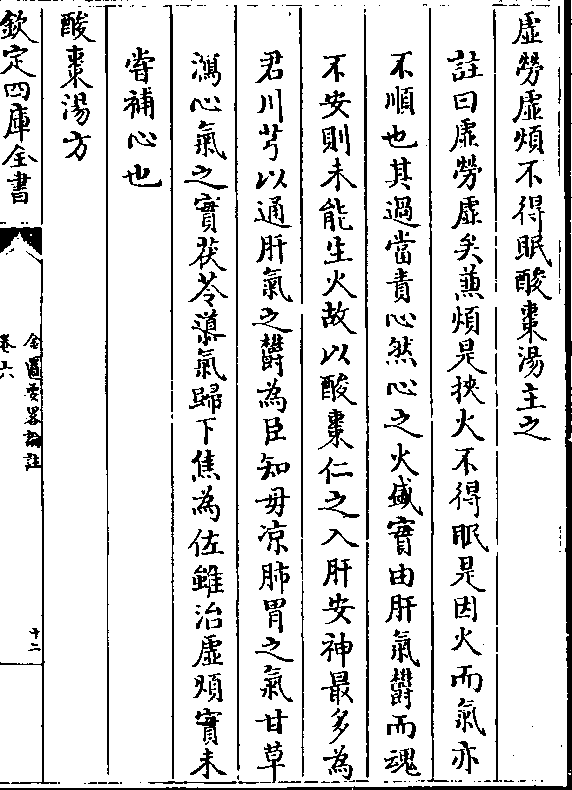 虛勞虛煩不得眠酸棗湯主之
註曰虛勞虛矣兼煩是挾火不得眠是因火而氣亦
不順也其過當責心然心之火盛實由肝氣欝而魂
不安則木能生火故以酸棗仁之入肝安神最多為
君川芎以通肝氣之欝為臣知母凉肺胃之氣甘草
瀉心氣之實茯苓導氣歸下焦為佐雖治虛煩實未
甞補心也
酸棗湯方
欽定四庫全書
金匱要畧論註
卷六
十二